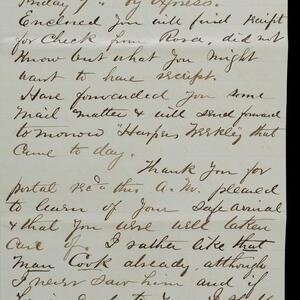 Friday 9" by express.
Enclosed you will find receipt
for Check from Rosa, did not
know but what you might
want to have receipt.
Have forwarded you some
Mail matter & will send forward
to morrow "Harpers Weekly" that
came to day.
Thank you for
postal recd this A.M. pleased
to learn of your safe arrival
& that you were well taken
care of. I rather like that
man Cook already, although
I never saw him and if